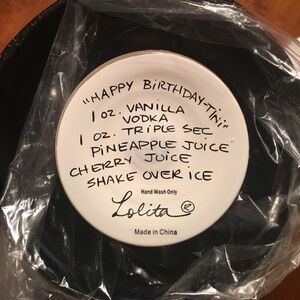 "HAPPY BIRTHDAY-TINI"
1 OZ. VANILLA
VODKA
1 OZ. TRIPLE SEC
PINEAPPLE JUICE
CHERRY JUICE
SHAKE OVER ICE
Hand Wash Only
Lolita ®
Made in China